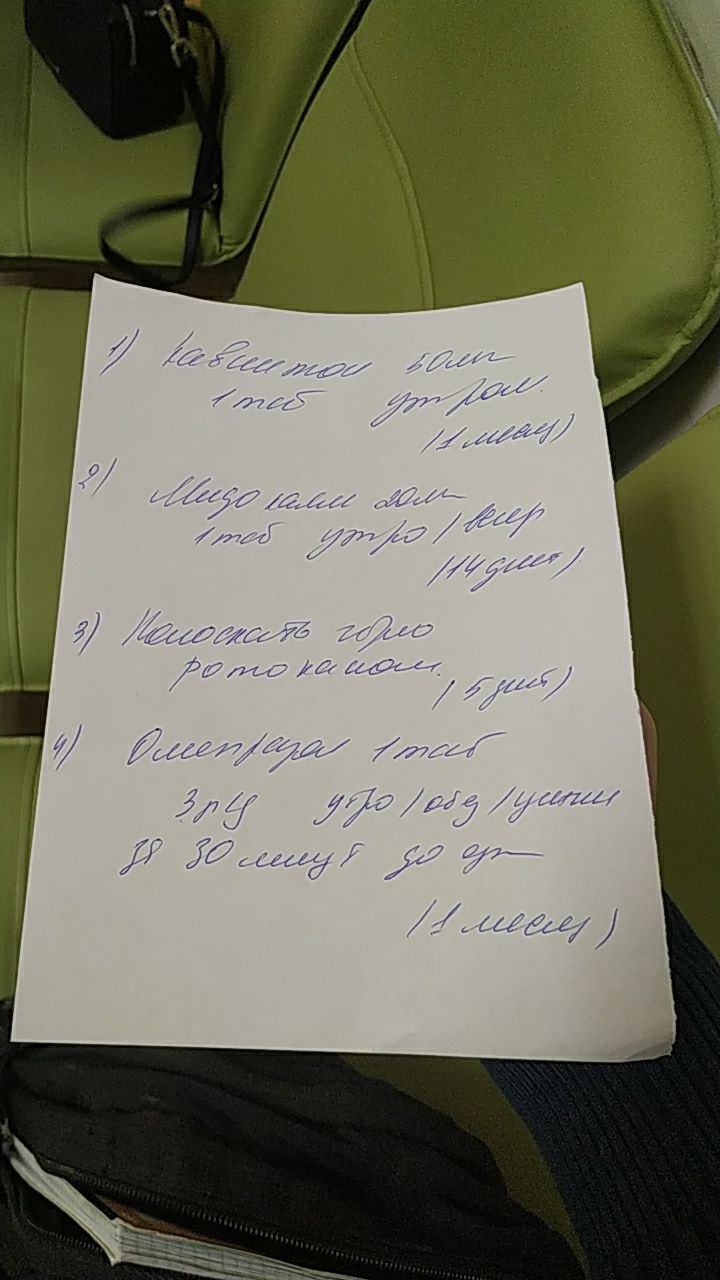 1) Кавинтон 50мг
1 таб утром
(1 месяц)
2) Мидокалм 20мг
1 таб утро / вечер
(14 дней)
3) Полоскать горло
ротоканом
(5 дней)
4) Омепразол 1 таб
3 р/д утро / обед / ужин
за 30 минут до еды
(1 месяц)